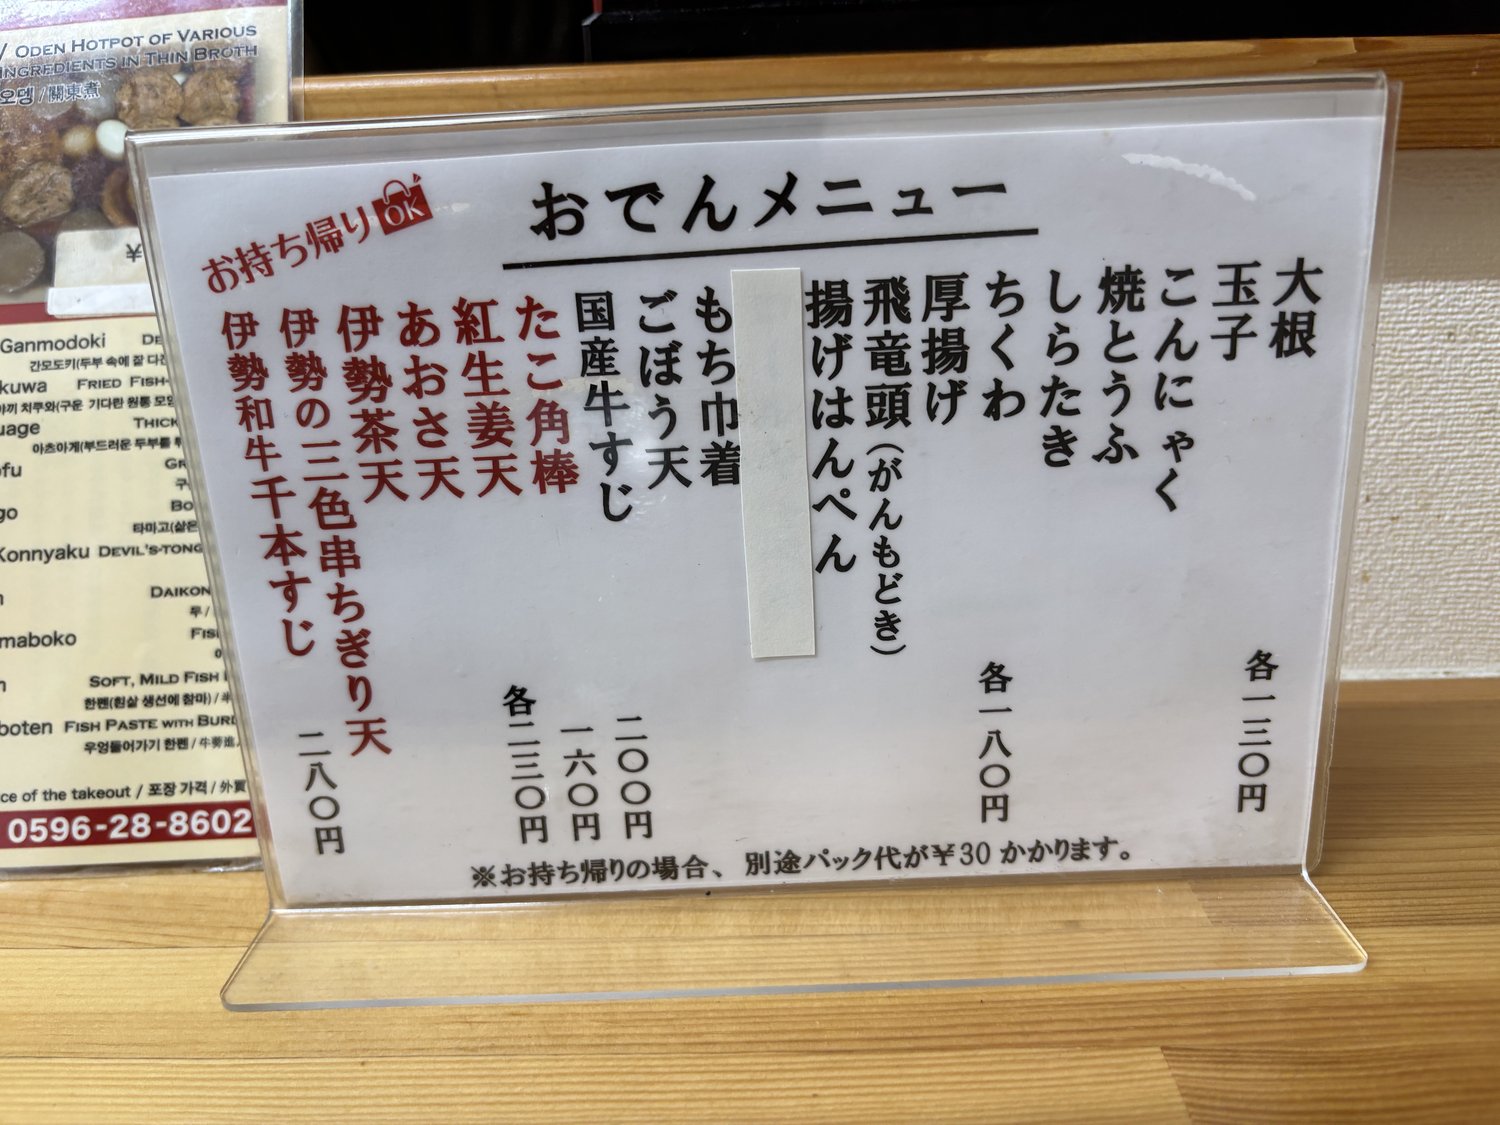 おでんメニュー
お持ち帰りOK
大根
玉子
こんにゃく
焼とうふ
しらたき
ちくわ
厚揚げ
飛竜頭(がんもどき)
揚げはんぺん
もち巾着
ごぼう天
国産牛すじ
たこ角棒
紅生姜天
あおさ天
伊勢茶天
伊勢の三色串ちぎり天
伊勢和牛千本すじ
各一三〇円
各一八〇円
二〇〇円
一六〇円
各二三〇円
二八〇円
※お持ち帰りの場合、別途パック代が￥30かかります。
/ ODEN HOTPOT OF VARIOUS
INGREDIENTS IN THIN BROTH
오뎅 / 關東煮
¥
Ganmodoki
간모도키(두부 속에 잘 다진
FRIED FISH-
THICK
아츠아게(부드러운 두부를 튀
Konnyaku DEVIL'S-TONG
DAIKON
무 /
SOFT, MILD FISH
한펜(흰살 생선에 참마) /
FISH PASTE WITH BURD
우엉들어가기 한펜 /
of the takeout / 포장 가격 /
0596-28-8602